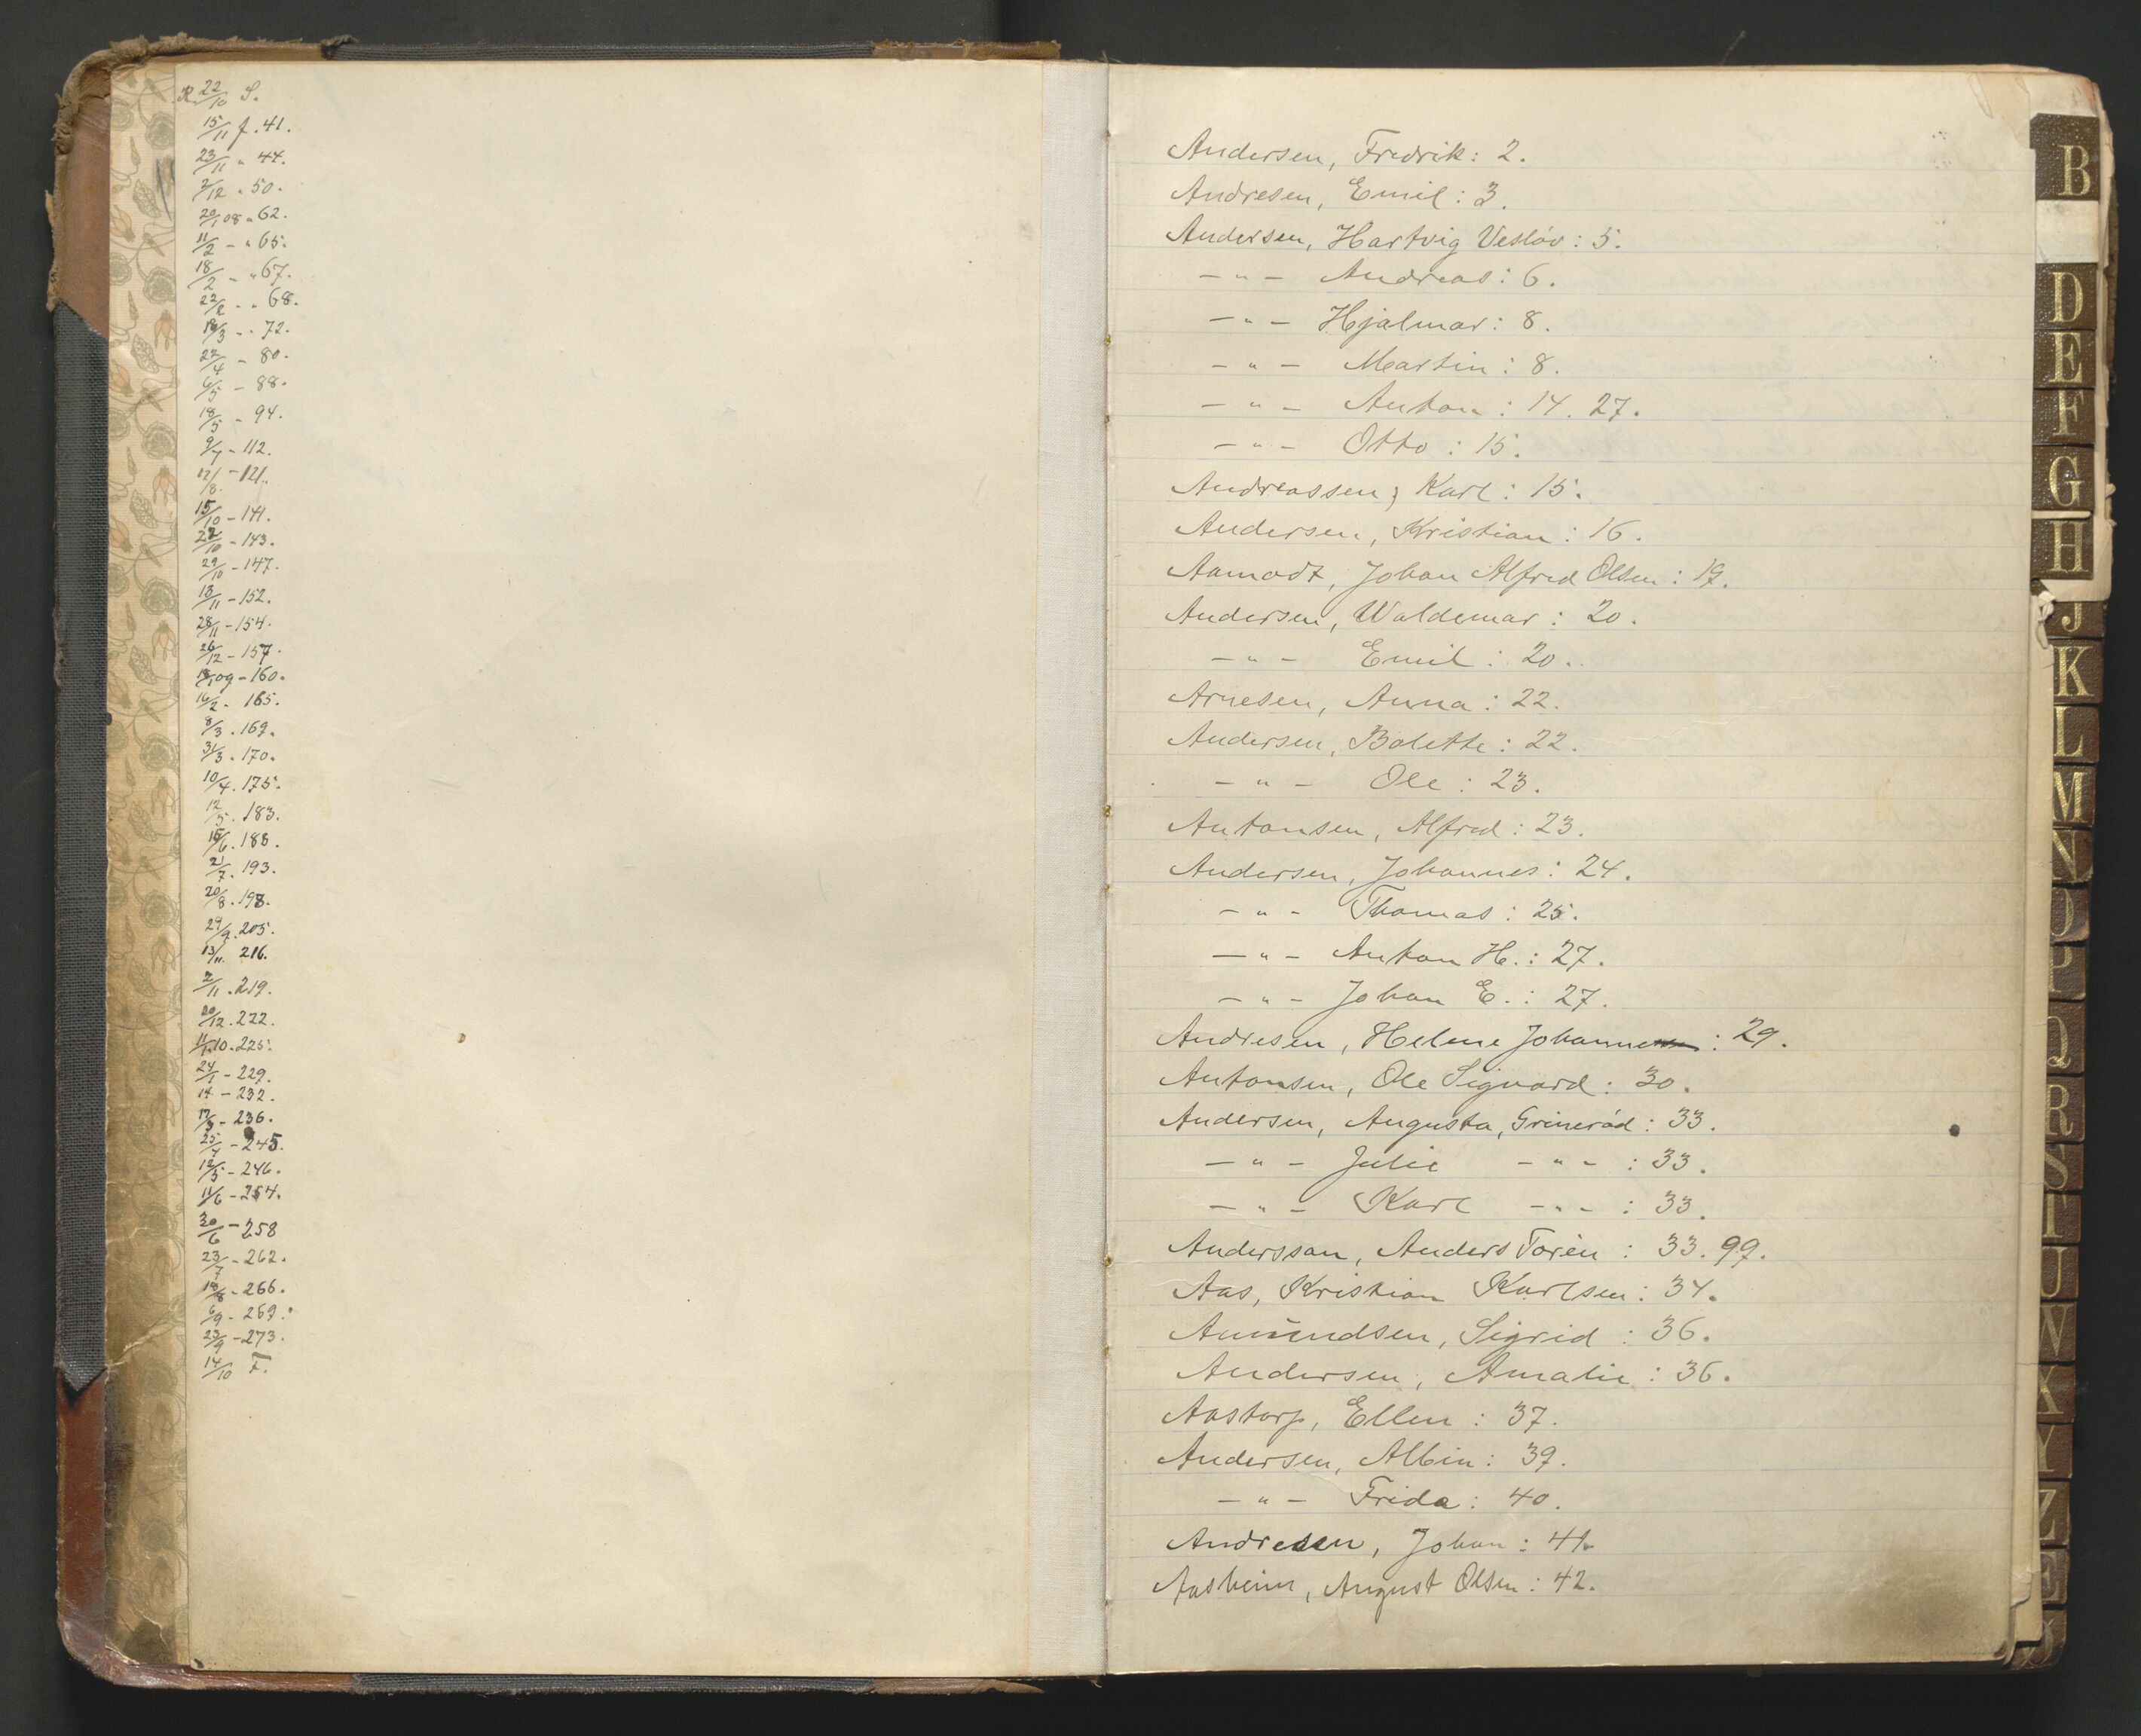 R. 22/10 S.
15/11 f. 41.
23/11 " 44.
2/12 " 50.
20/1 08 " 62.
11/2 – " 65.
18/2 – " 67.
22/2 – " 68.
19/3 – " 72.
22/4 – 80.
6/5 – 88.
18/5 – 94.
9/7 – 112.
12/8. – 121.
15/10 – 141.
22/10 – 143.
29/10 – 147.
13/11 – 152.
28/11 – 154.
26/12 – 157.
09 – 160.
16/2 . 165.
8/3 . 169.
31/3 . 170.
10/4 . 175.
12/5 . 183.
15/6 . 188.
21/7 . 193.
20/8 . 198.
29/9 . 205.
13/11 216.
2/11 . 219.
20/12 . 222.
11/1 10 . 225.
24/1 – 229.
14 – 232.
17/3 – 236.
25/4 – 245.
12/5 – 246.
11/6 – 254.
30/6 – 258
23/7 – 262.
18/8 – 266.
6/9 – 269.
23/9 – 273.
14/10 F.
Andersen, Fredrik : 2.
Andresen, Emil : 3.
Andersen, Hartvig Vesløv : 5.
– " – Andreas : 6.
– " – Hjalmar : 8.
– " – Martin : 8.
– " – Anton : 14. 27.
– " – Otto : 15.
Andreassen, Karl : 15.
Andersen, Kristian : 16.
Aamodt, Johan Alfred Olsen : 19.
Andersen, Waldemar : 20.
– " – Emil : 20.
Arnesen, Anna : 22.
Andersen, Bolette : 22.
– " – Ole : 23.
Antonsen, Alfred : 23.
Andersen, Johannes : 24.
– " – Thomas : 25.
– " – Anton H. : 27.
– " – Johan E. : 27.
Andresen, Helene Johanne : 29.
Antonsen, Ole Sigvard : 30.
Andersen, Augusta, Grinerød : 33.
– " – Julie – " – : 33.
– " – Karl – " – : 33.
Andersson, Anders Torén : 33. 99.
Aas, Kristian Karlsen : 34.
Amundsen, Sigrid : 36.
Andersen, Amalie : 36.
Aastorp, Ellen : 37.
Andersen, Albin : 39.
– " – Frida : 40.
Andresen, Johan : 41.
Aasheim, August Olsen : 42.
B
D
E
F
G
H
J
K
L
M
N
O
P
Q
R
S
T
U
W
X
Y
Z